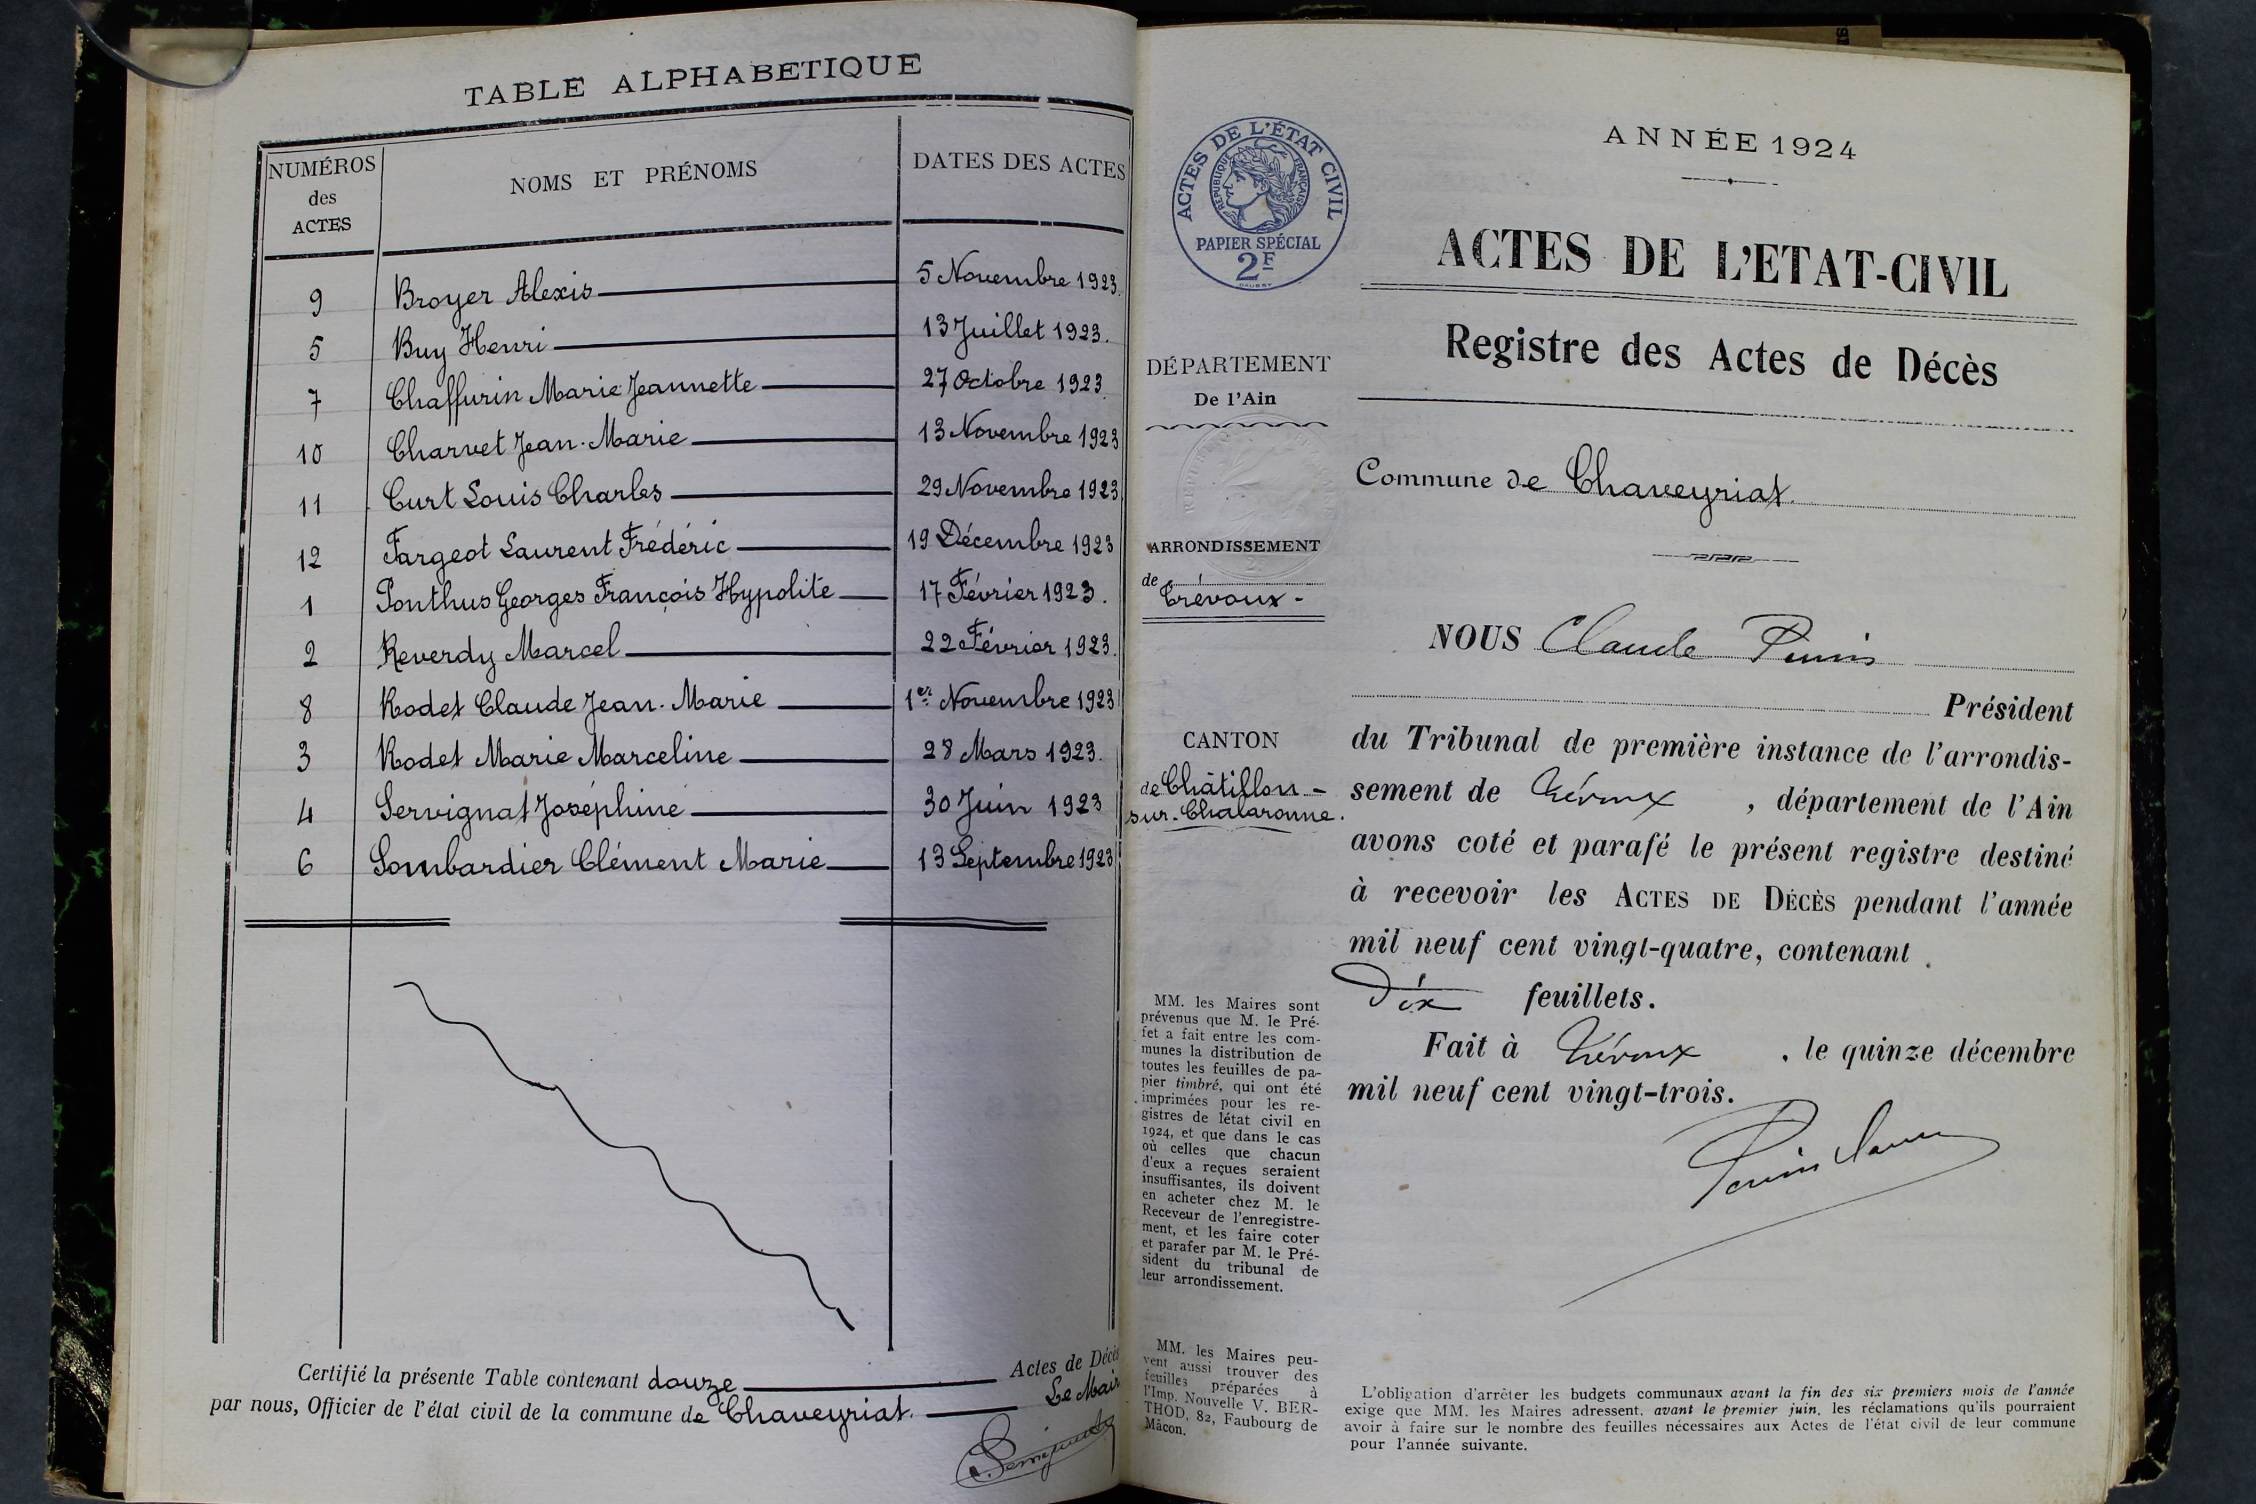 TABLE ALPHABETIQUE
NUMÉROS
des
ACTES
NOMS ET PRÉNOMS
DATES DES ACTES
9 Broyer Alexis 5 Novembre 1923.
5 Buy Henri 13 Juillet 1923.
7 Chaffurin Marie Jeannette 27 Octobre 1923.
10 Charvet Jean-Marie 13 Novembre 1923
11 Curt Louis Charles 29 Novembre 1923
12 Fargeot Laurent Frédéric 19 Décembre 1923
1 Ponthus Georges François Hypolite 17 Février 1923.
2 Reverdy Marcel 22 Février 1923.
8 Rodet Claude Jean-Marie 1er Novembre 1923
3 Rodet Marie Marceline 28 Mars 1923.
4 Servignat Joséphine 30 Juin 1923
6 Sombardier Clément Marie 13 Septembre 1923
Certifié la présente Table contenant douze Actes de Décès
par nous, Officier de l'état civil de la commune de Chaveyriat. Le Maire
ACTES DE L'ÉTAT CIVIL
RÉPUBLIQUE FRANÇAISE
PAPIER SPÉCIAL
2F
DÉPARTEMENT
De l'Ain
ARRONDISSEMENT
de
Trévoux-
CANTON
de Châtillon-
sur-Chalaronne.
MM. les Maires sont
prévenus que M. le Pré-
fet a fait entre les com-
munes la distribution de
toutes les feuilles de pa-
pier timbré, qui ont été
imprimées pour les re-
gistres de l'état civil en
1924, et que dans le cas
où celles que chacun
d'eux a reçues seraient
insuffisantes, ils doivent
en acheter chez M. le
Receveur de l'enregistre-
ment, et les faire coter
et parafer par M. le Pré-
sident du tribunal de
leur arrondissement.
MM. les Maires peu-
vent aussi trouver des
feuilles préparées à
l'Imp. Nouvelle V. BER-
THOD, 82, Faubourg de
Mâcon.
ANNÉE 1924
ACTES DE L'ETAT-CIVIL
Registre des Actes de Décès
Commune de Chaveyriat.
NOUS Claude
Président
du Tribunal de première instance de l'arrondis-
sement de Trévoux, département de l'Ain
avons coté et parafé le présent registre destiné
à recevoir les ACTES DE DÉCÈS pendant l'année
mil neuf cent vingt-quatre, contenant
Dix feuillets.
Fait à Trévoux, le quinze décembre
mil neuf cent vingt-trois.
L'obligation d'arrêter les budgets communaux avant la fin des six premiers mois de l'année
exige que MM. les Maires adressent, avant le premier juin, les réclamations qu'ils pourraient
avoir à faire sur le nombre des feuilles nécessaires aux Actes de l'état civil de leur commune
pour l'année suivante.